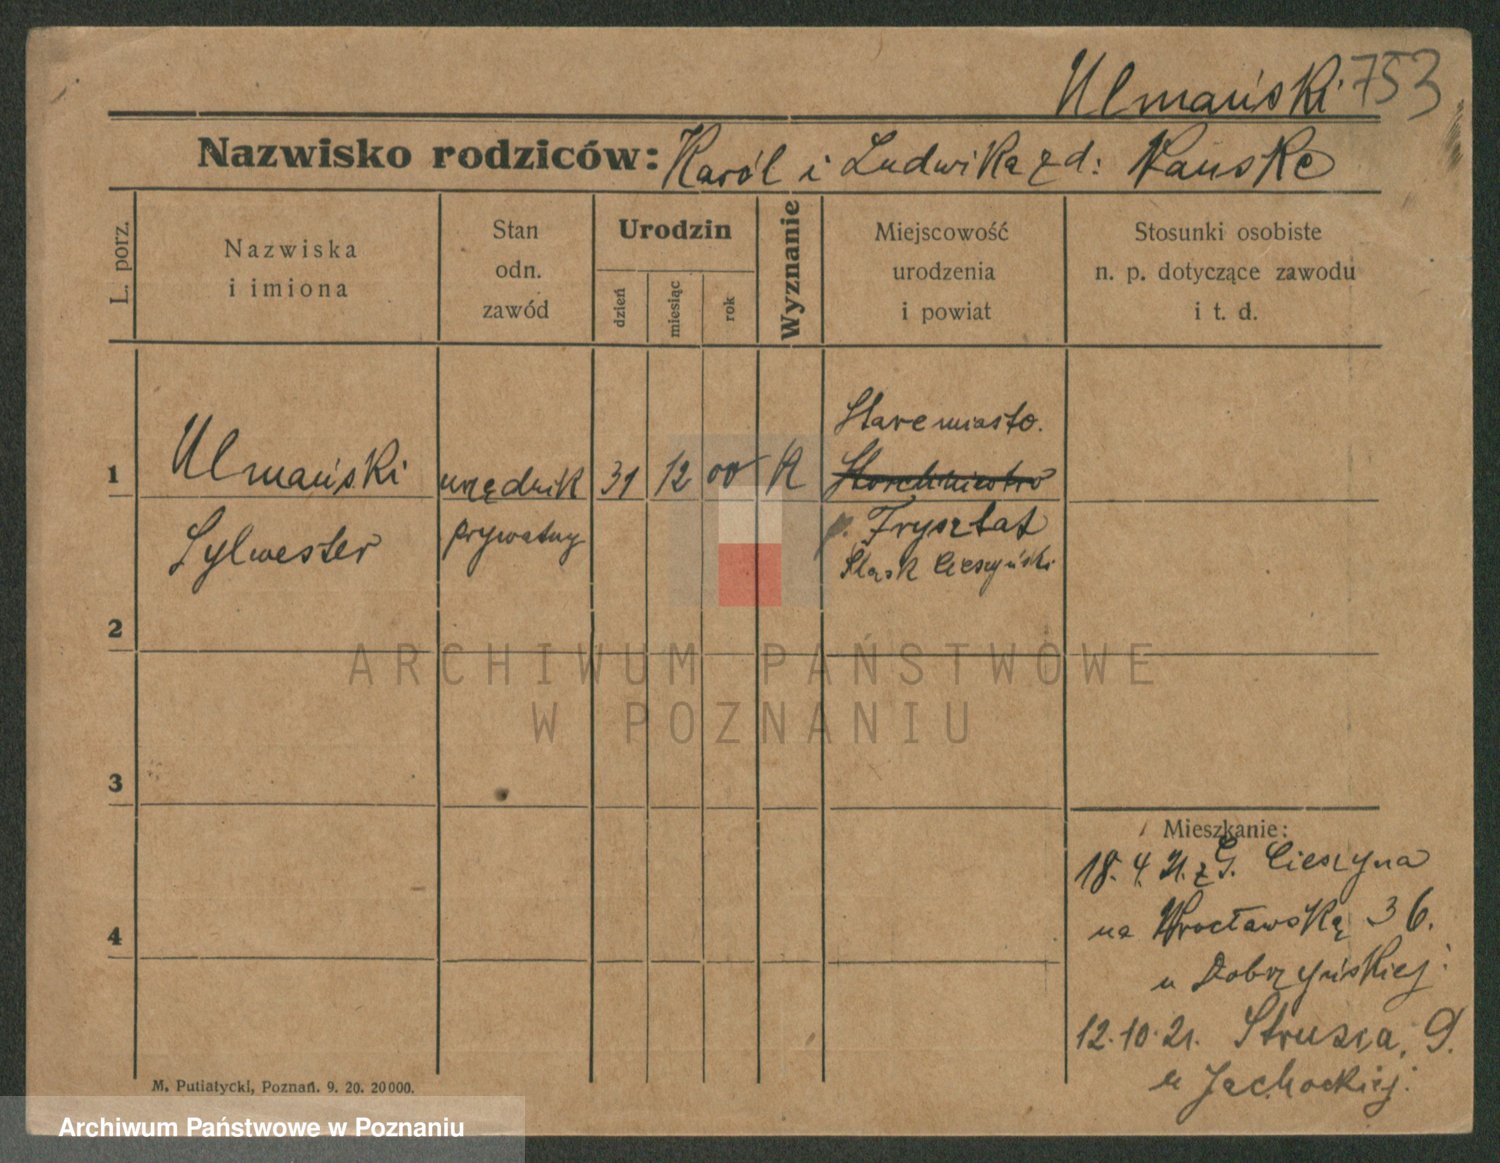 Ulmański 753
Nazwisko rodziców: Karól i Ludwika z d: Kauske
L. porz.
Nazwiska
i imiona
Stan
odn.
zawód
Urodzin
dzień
miesiąc
rok
Wyznanie
Miejscowość
urodzenia
i powiat
Stosunki osobiste
n. p. dotyczące zawodu
i t. d.
Staremiasto.
1 Ulmański urzędnik 31 12 00 K
Sylwester prywatny p. Frysztat
Śląsk Cieszyński
2
3
4
Mieszkanie:
18. 4. 21. z G. Cieszyna
na Wrocławską 36.
u Dobrzyńskiej.
12.10.21. Strusia, 9.
u Jachockiej.
M. Putiatycki, Poznań. 9. 20. 20000.
ARCHIWUM PAŃSTWOWE
W POZNANIU
Archiwum Państwowe w Poznaniu